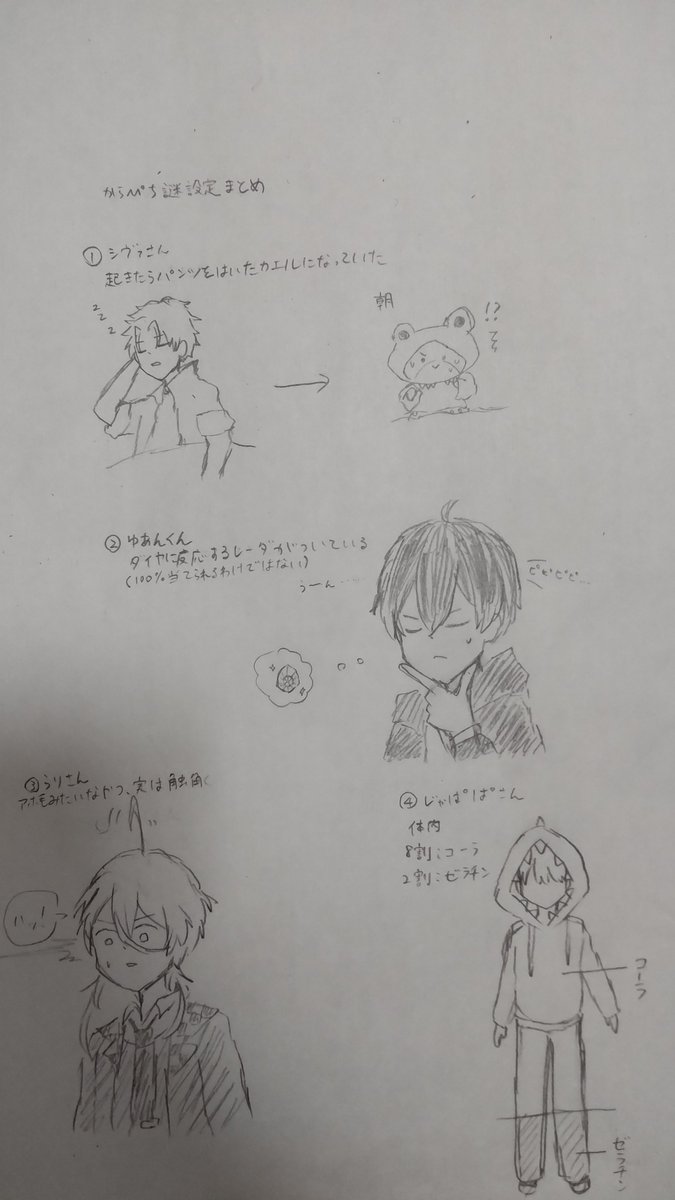 からぺち謎設定まとめ
① シヴァさん
起きたらパンツをはいたカエルになっていた
zzz
朝
!?
② ゆあんくん
ダイヤに反応するレーダがついている
(100%当てられるわけではない)
うーん……
ピピピピ…
③ うりさん
アホ毛みたいなやつ、実は触角
ハッ!
④ じゃぱぱさん
体内
8割:コーラ
2割:ゼラチン
コーラ
ゼラチン